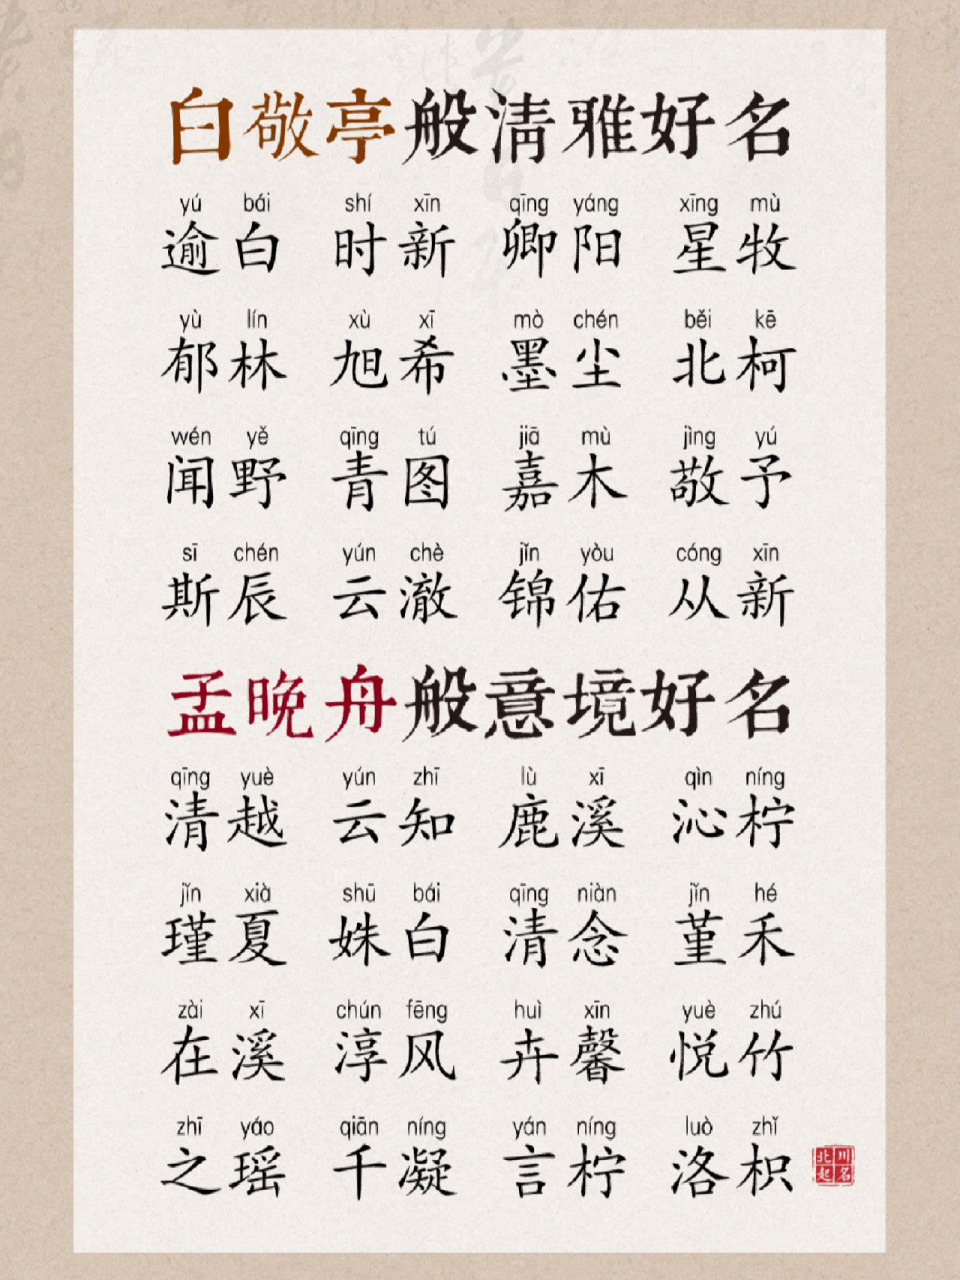 白敬亭般清雅好名
yú bái shí xīn qīng yáng xīng mù
逾白 时新 卿阳 星牧
yù lín xù xī mò chén běi kē
郁林 旭希 墨尘 北柯
wén yě qīng tú jiā mù jìng yú
闻野 青图 嘉木 敬予
sī chén yún chè jǐn yòu cóng xīn
斯辰 云澈 锦佑 从新
孟晚舟般意境好名
qīng yuè yún zhī lù xī qìn níng
清越 云知 鹿溪 沁柠
jǐn xià shū bái qīng niàn jǐn hé
瑾夏 姝白 清念 堇禾
zài xī chún fēng huì xīn yuè zhú
在溪 淳风 卉馨 悦竹
zhī yáo qiān níng yán níng luò zhǐ
之瑶 千凝 言柠 洛枳
北川起名